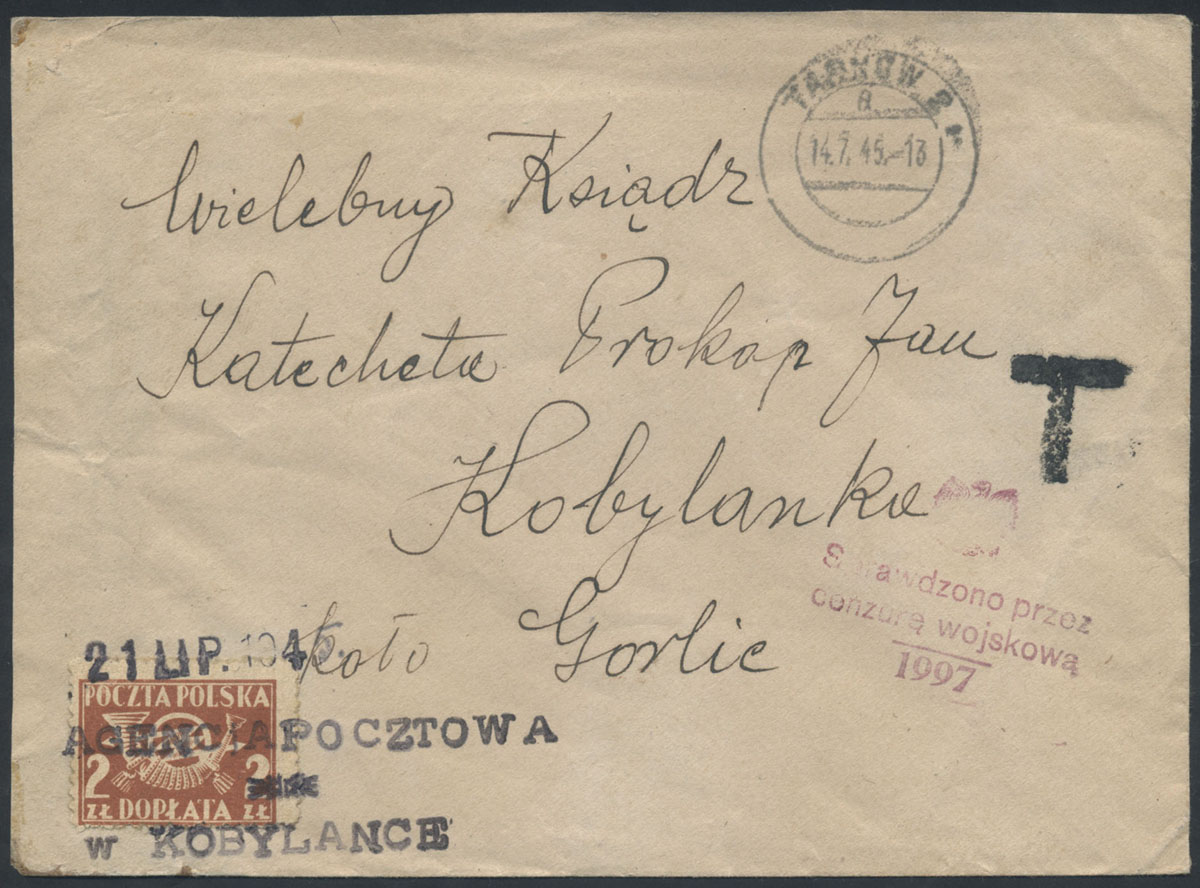 TARNÓW 2
a
14.7.45.-13
Wielebny Ksiądz
Katecheta Prokop Jan
T
Kobylanka
Sprawdzono przez
cenzurę wojskową
1997
koło Gorlic
21 LIP. 1945.
POCZTA POLSKA
AGENCJA POCZTOWA
2 2
ZŁ DOPŁATA ZŁ
w KOBYLANCE